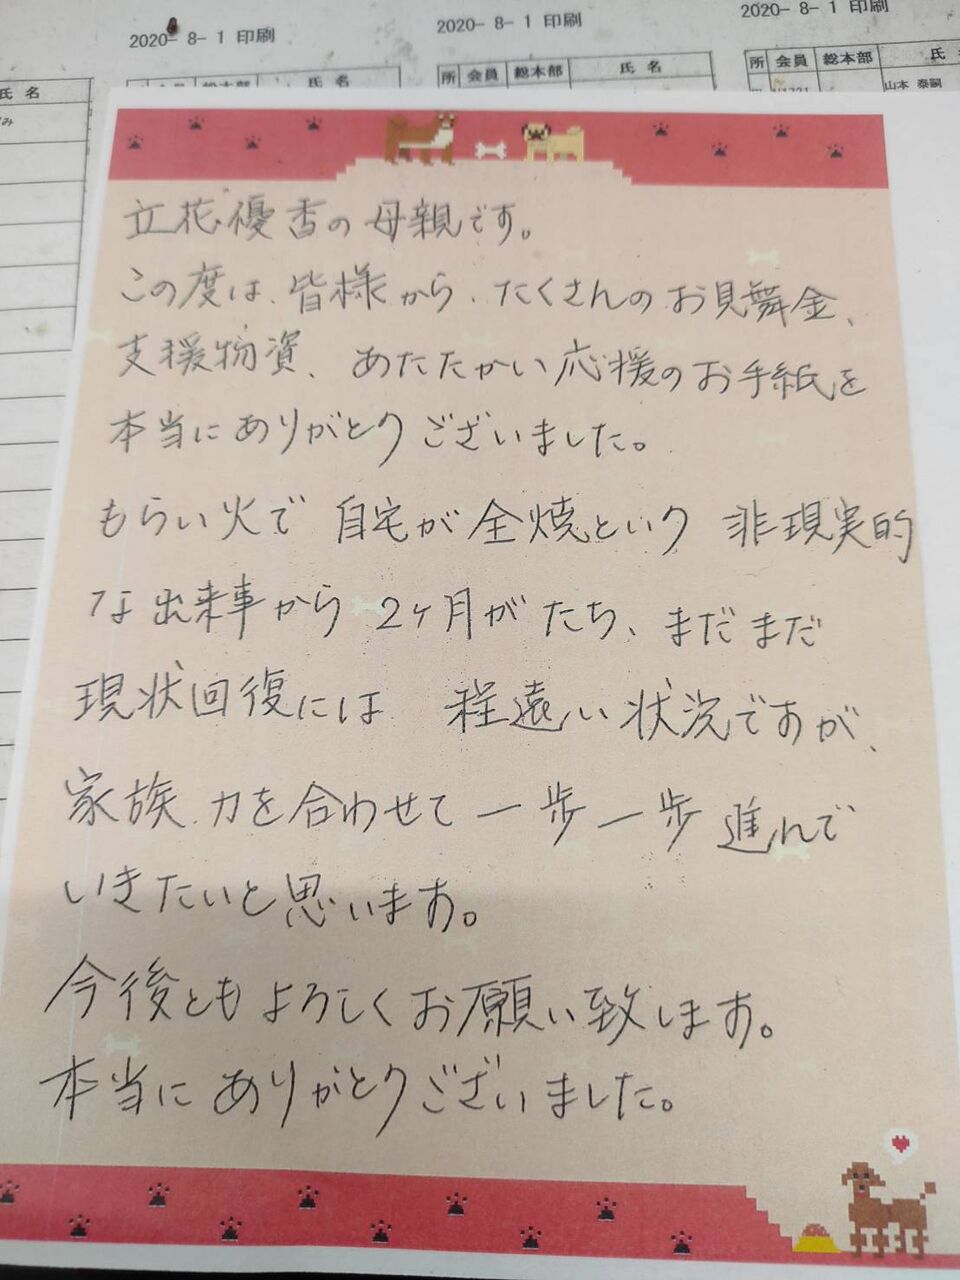 2020- 8- 1 印刷
2020- 8- 1 印刷
2020- 8- 1 印刷
氏 名
会員 総本部 氏 名
所 会員 総本部 氏 名
所 会員 総本部 氏
山本 泰嗣
立花優香の母親です。
この度は、皆様から、たくさんのお見舞金、
支援物資、あたたかい応援のお手紙を
本当にありがとうございました。
もらい火で 自宅が全焼という 非現実的
な出来事から 2ヶ月がたち、まだまだ
現状回復には 程遠い状況ですが、
家族 力を合わせて一歩一歩進んで
いきたいと思います。
今後ともよろしくお願い致します。
本当にありがとうございました。